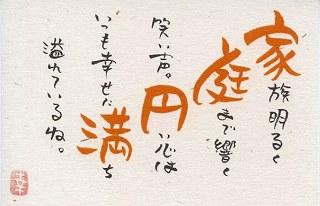 家族明るく
庭まで響く
笑い声。
円い心は
満ち
いつも幸せに
溢れているね。